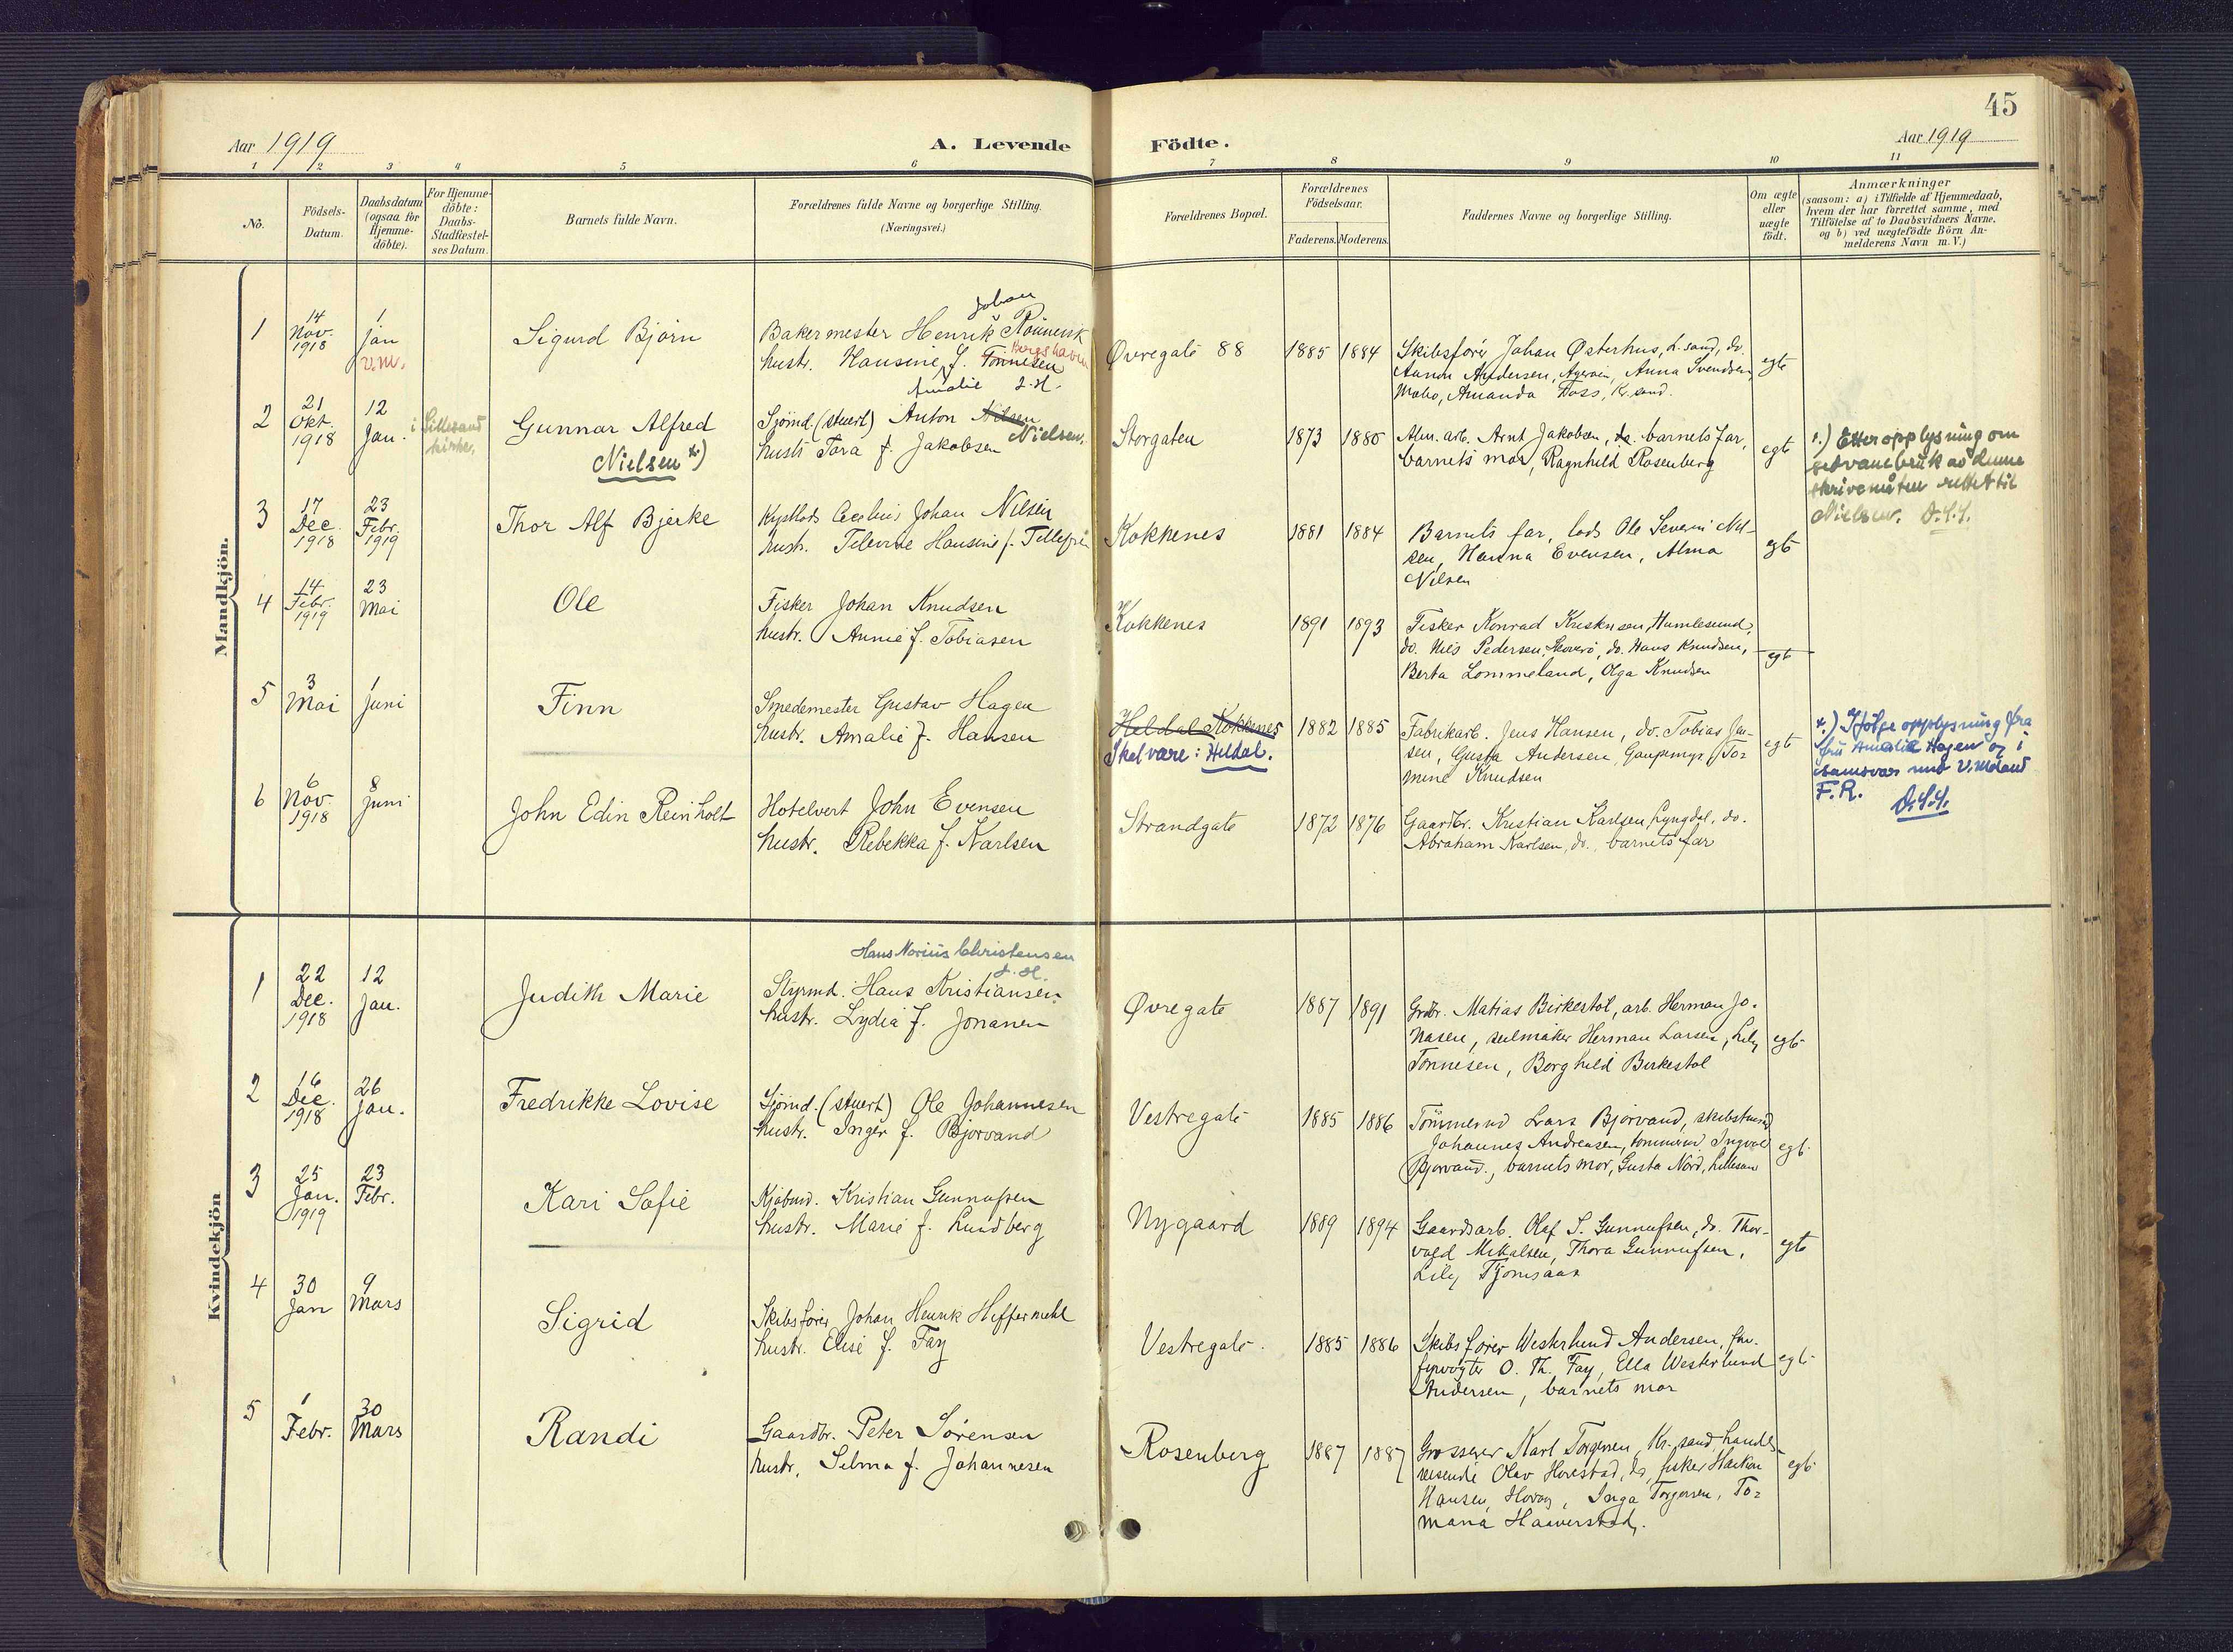 45
Aar 1919
A. Levende Födte.
Aar 1919
1 2 3 4 5 6 7 8 9 10 11
No.
Födsels-Datum.
Daabsdatum (ogsaa for Hjemme-döbte).
For Hjemme-döbte: Daabs-Stadfæstel-ses Datum.
Barnets fulde Navn.
Forældrenes fulde Navne og borgerlige Stilling. (Næringsvei.)
Forældrenes Bopæl.
Forældrenes Födselsaar.
Faderens. Moderens.
Faddernes Navne og borgerlige Stilling.
Om ægte eller uægte födt.
Anmærkninger
(saasom: a) i Tilfælde af Hjemmedaab,
hvem der har forrettet samme, med
Tilföielse af to Daabsvidners Navne,
og b) ved uægtefödte Börn An-
melderens Navn m. V.)
Mandkjön.
1
14 Nov. 1918
1 Jan
v.m.
Sigurd Bjørn
Johan
Bakermester Henrik
hustr. Hansine f. Tönnesen
Amalie
Øvregate 88
1885 1884
Skibsfører Johan Østerhus, L.sand, do.
Andersen, Anna Svendsen
Amanda Foss, Kr.sand.
egte
2
21 Okt. 1918
12 Jan.
i Lillesand kirke,
Gunnar Alfred
Nielsen *)
Sjömd. (stuert) Anton Nilsen
Nielsen.
hustr Tora f. Jakobsen
Storgaten
1873 1880
Alm. arb. Arnt Jakobsen, barnets far,
barnets mor, Ragnhild Rosenberg
egte
*.) Etter opplysning om
sedvanebruk av denne
skrivemåten rettet til
Nielsen. D.S.S.
3
17 Dec. 1918
23 Febr. 1919
Thor Alf Bjerke
Kystlods Johan Nilsen
hustr. Hansine f.
Kokkenes
1881 1884
Barnets far, lods Ole Severin Nil-
sen, Hanna Evensen, Alma
Nilsen
egte
4
14 Febr. 1919
23 Mai
Ole
Fisker Johan Knudsen
hustr. Annie f. Tobiasen
Kokkenes
1891 1893
Fisker Konrad Humlesund,
do. Nils Pedersen, do. Hans Knudsen,
Berta Lommeland, Olga Knudsen
egte
5
3 Mai
1 Juni
Finn
Smedemester Gustav Hagen
hustr. Amalie f. Hansen
Heldal Kokkenes
Skal være: Heldal.
1882 1885
Fabrikarb. Jens Hansen, do. Tobias Jen-
sen, Gusta Andersen, To-
mine Knudsen
egte
*.) Ifølge opplysning fra
fru Amalie Hagen og i
samsvar med
F.R. D.S.S.
6
6 Nov. 1918
8 Juni
John Edin Reinholt
Hotelvert John Evensen
hustr. Rebekka f. Karlsen
Strandgate
1872 1876
Gaardbr. Kristian Karlsen, Lyngdal, do.
Abraham Karlsen, do., barnets far
Kvindekjön
1
22 Dec. 1918
12 Jan.
Judith Marie
Hans Norius Christensen
Styrmd. Hans Kristiansen
hustr. Lydia f. Jonasen
Øvregate
1887 1891
Grdbr. Matias Birkestøl, arb. Herman Jo-
nasen, seilmaker Herman Larsen, Lily
Tönnesen, Borghild Birkestøl
egte
2
16 Dec. 1918
26 Jan.
Fredrikke Lovise
Sjömd. (stuert) Ole Johannesen
hustr. Inger f. Bjorvand
Vestregate
1885 1886
Tömmermd Lars Bjorvand,
Johannes Andreasen, tömmermd. Ingvald
Bjorvand., barnets mor, Gusta Nord, Lillesan
egte
3
25 Jan. 1919
23 Febr.
Kari Sofie
Kjöbmd. Kristian Gunnufsen
hustr. Marie f. Lundberg
Nygaard
1889 1894
Gaardsarb. Olaf S. Gunnufsen, do. Thor-
vald Mikalsen, Thora Gunnufsen,
Lily
egte
4
30 Jan
9 Mars
Sigrid
Skibsfører Johan Henrik Heffermehl
hustr. Elise f. Fay
Vestregate.
1885 1886
Skibsfører Westerlund Andersen,
fyrvogter O. Th. Fay, Ella Westerlund
Andersen, barnets mor
egte
5
1 Febr.
30 Mars
Randi
Gaardbr. Peter Sörensen
hustr. Selma f. Johannesen
Rosenberg
1887 1887
Grosserer Karl Torgersen, Kr.sand, handels-
reisende Olav do, fisker Haakon
Hansen, Inga Torgersen, To-
mana Haaverstad.
egte